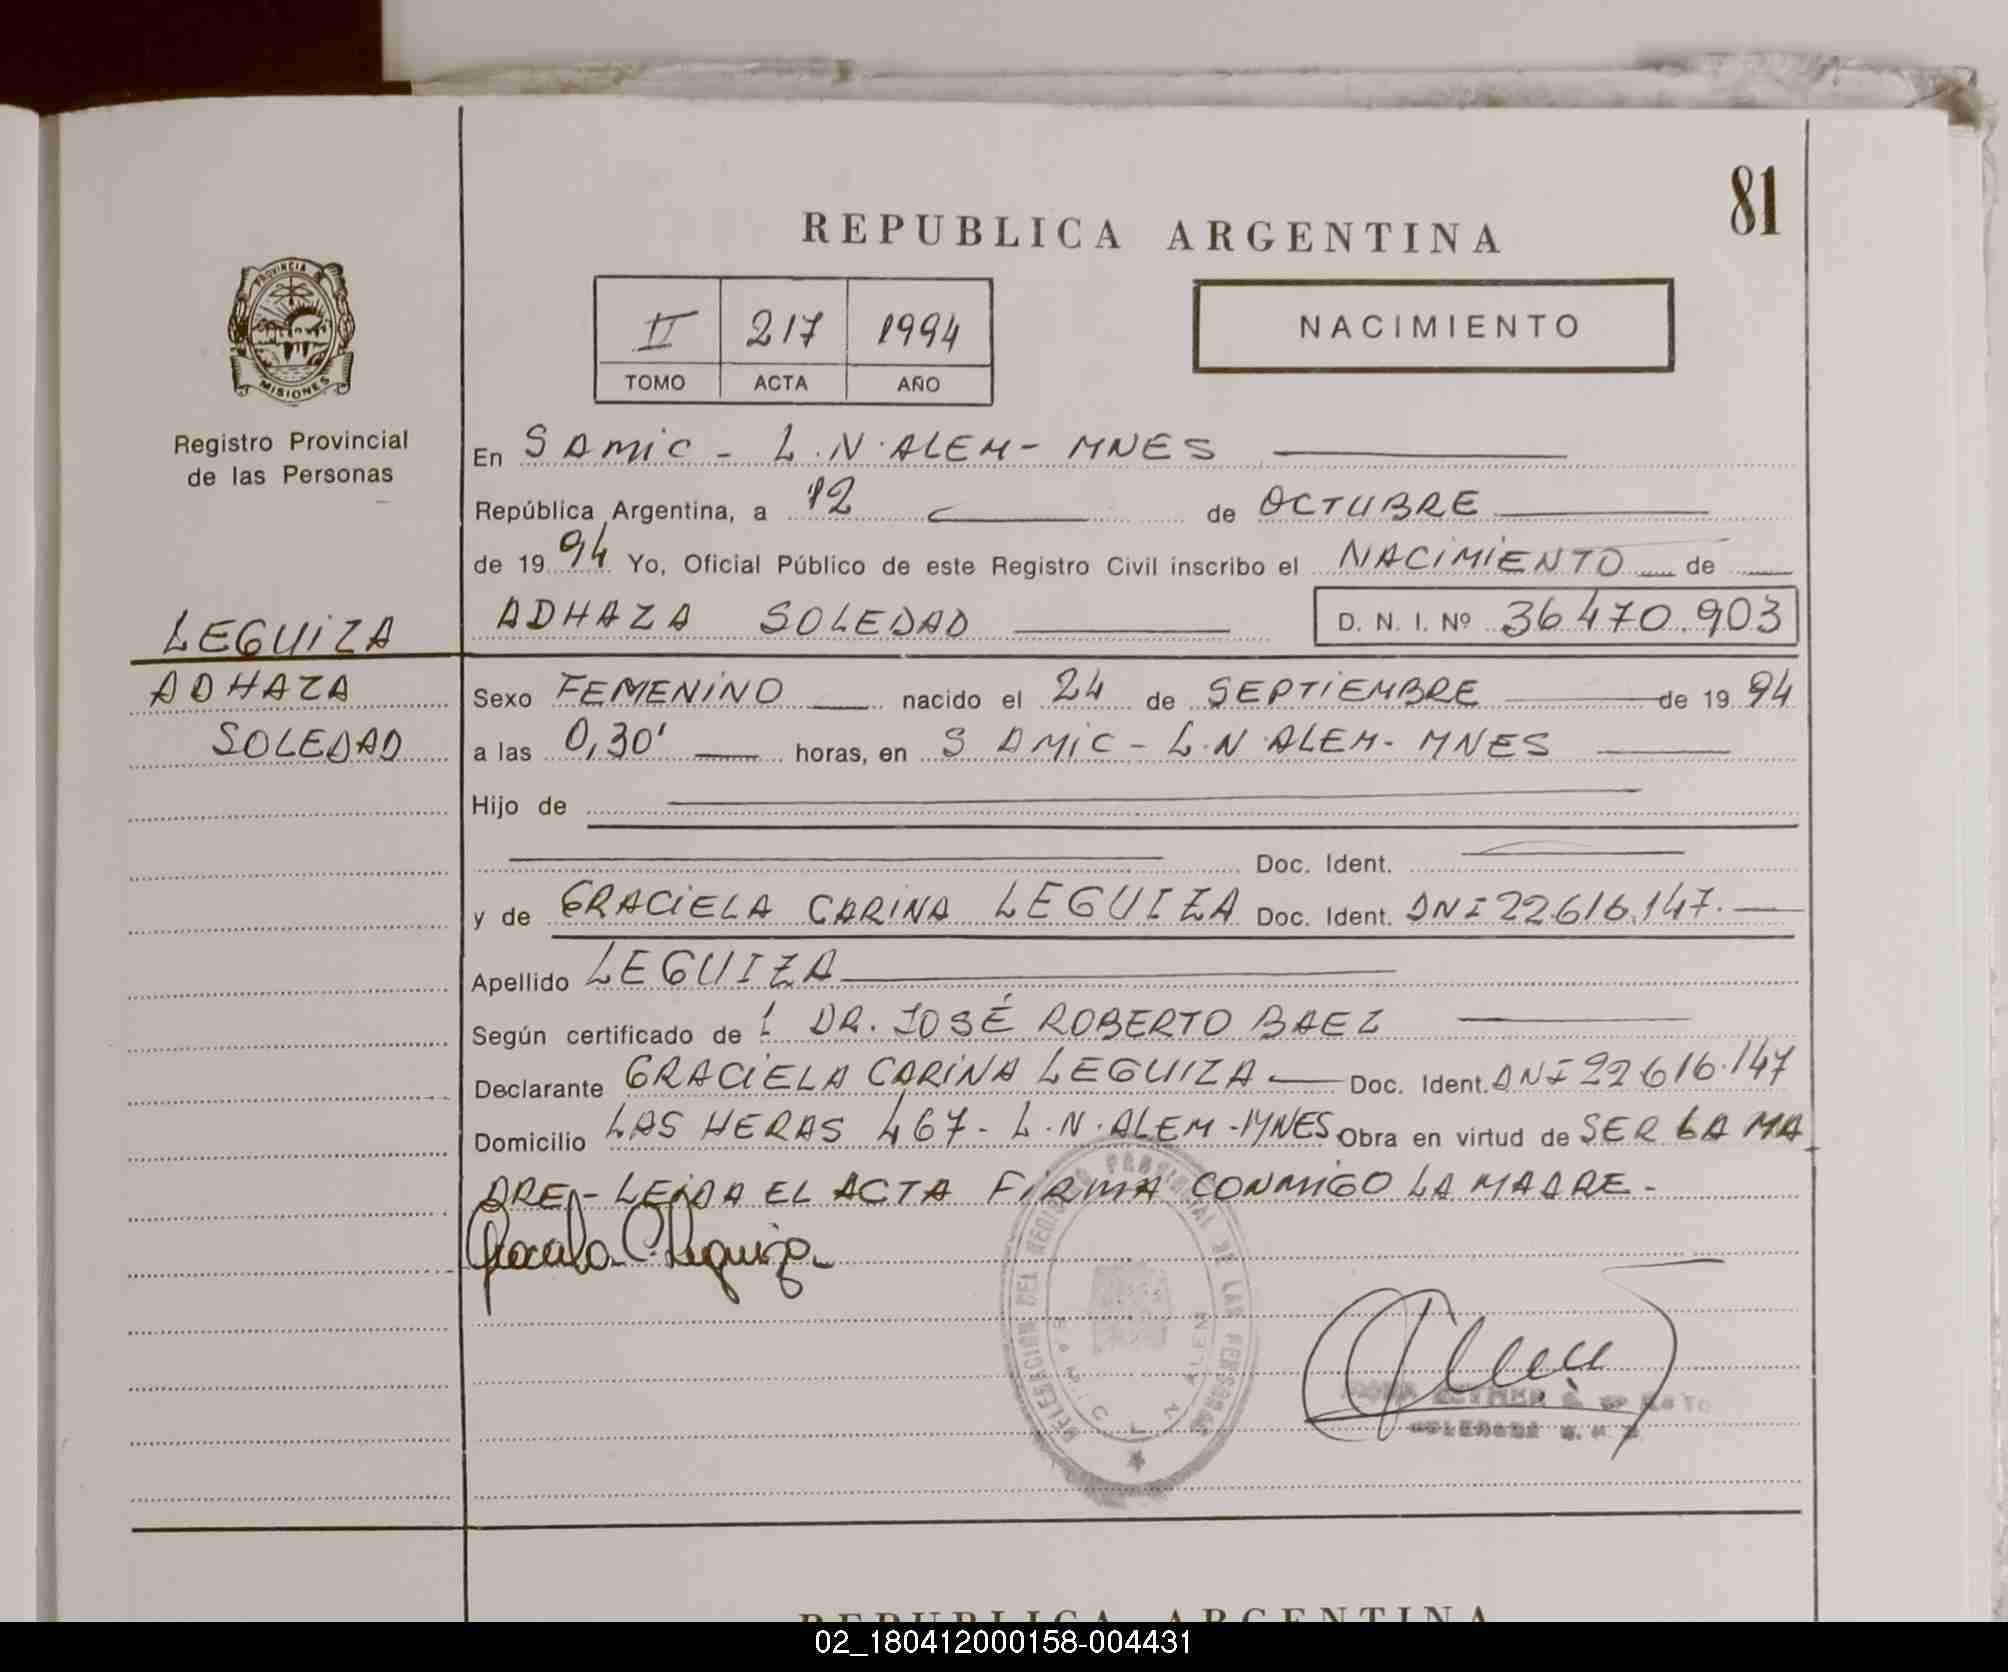 81
REPUBLICA ARGENTINA
PROVINCIA DE
MISIONES
Registro Provincial
de las Personas
II 217 1994
TOMO ACTA AÑO
NACIMIENTO
En SAMIC - L.N.ALEM - MNES
República Argentina, a 12 de OCTUBRE
de 1994 Yo, Oficial Público de este Registro Civil inscribo el NACIMIENTO de
LEGUIZA
ADHAZA SOLEDAD D. N. I. Nº 36.470.903
ADHAZA
SOLEDAD
Sexo FEMENINO nacido el 24 de SEPTIEMBRE de 1994
a las 0,30' horas, en SAMIC - L.N.ALEM - MNES
Hijo de
Doc. Ident.
y de GRACIELA CARINA LEGUIZA Doc. Ident. DNI 22.616.147.
Apellido LEGUIZA
Según certificado de DR. JOSÉ ROBERTO BAEZ
Declarante GRACIELA CARINA LEGUIZA Doc. Ident. DNI 22.616.147
Domicilio LAS HERAS 467 - L.N.ALEM - MNES Obra en virtud de SER LA MA
DRE - LEIDA EL ACTA FIRMA CONMIGO LA MADRE -
Graciela C. Leguiza
DELEGACION DEL REGISTRO PROVINCIAL DE LAS PERSONAS
SAMIC L N ALEM
REPUBLICA ARGENTINA
02_180412000158-004431